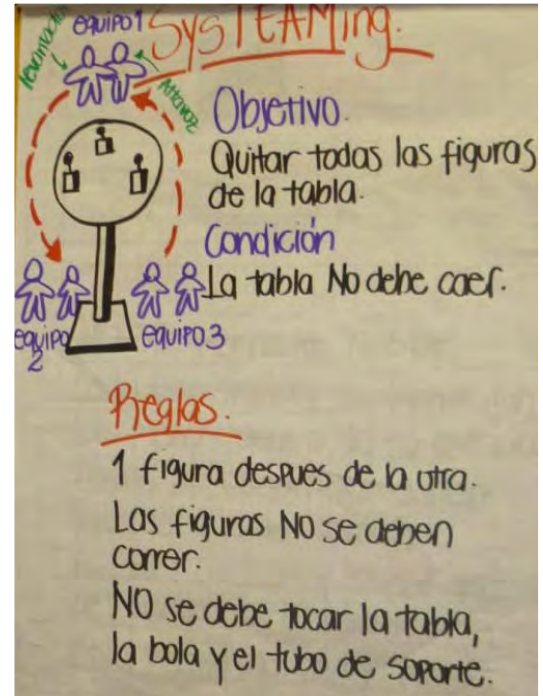 SysTEAMing.
equipo1
Altavoz
Objetivo.
Quitar todas las figuras
de la tabla.
Condición
La tabla No debe caer.
equipo
2
equipo 3
Reglas.
1 figura despues de la otra.
Las figuras NO se deben
correr.
NO se debe tocar la tabla,
la bola y el tubo de soporte.